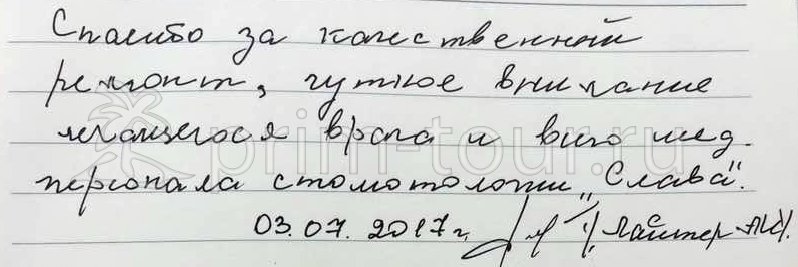 Спасибо за качественный
ремонт, чуткое внимание
врача и всего мед.
персонала стомотологии „Слава“.
03.07.2017г.
prim-tour.ru